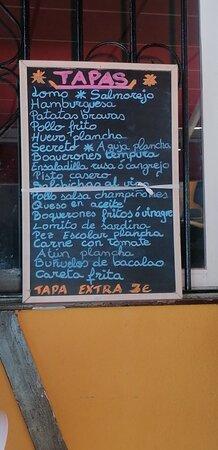 * TAPAS *
Lomo * Salmorejo
Hamburguesa
Patatas bravas
Pollo frito
Huevo plancha
Secreto * Aguja plancha
Boquerones tempura
Ensaladilla rusa o cangrejo
Pisto casero
Salchichas al vino
Pollo salsa champiñones
Queso en aceite
Boquerones fritos ó vinagre
Lomito de sardina
Pez Escolar plancha
Carne con tomate
Atún plancha
Buñuelos de bacalao
Careta frita
TAPA EXTRA 3€